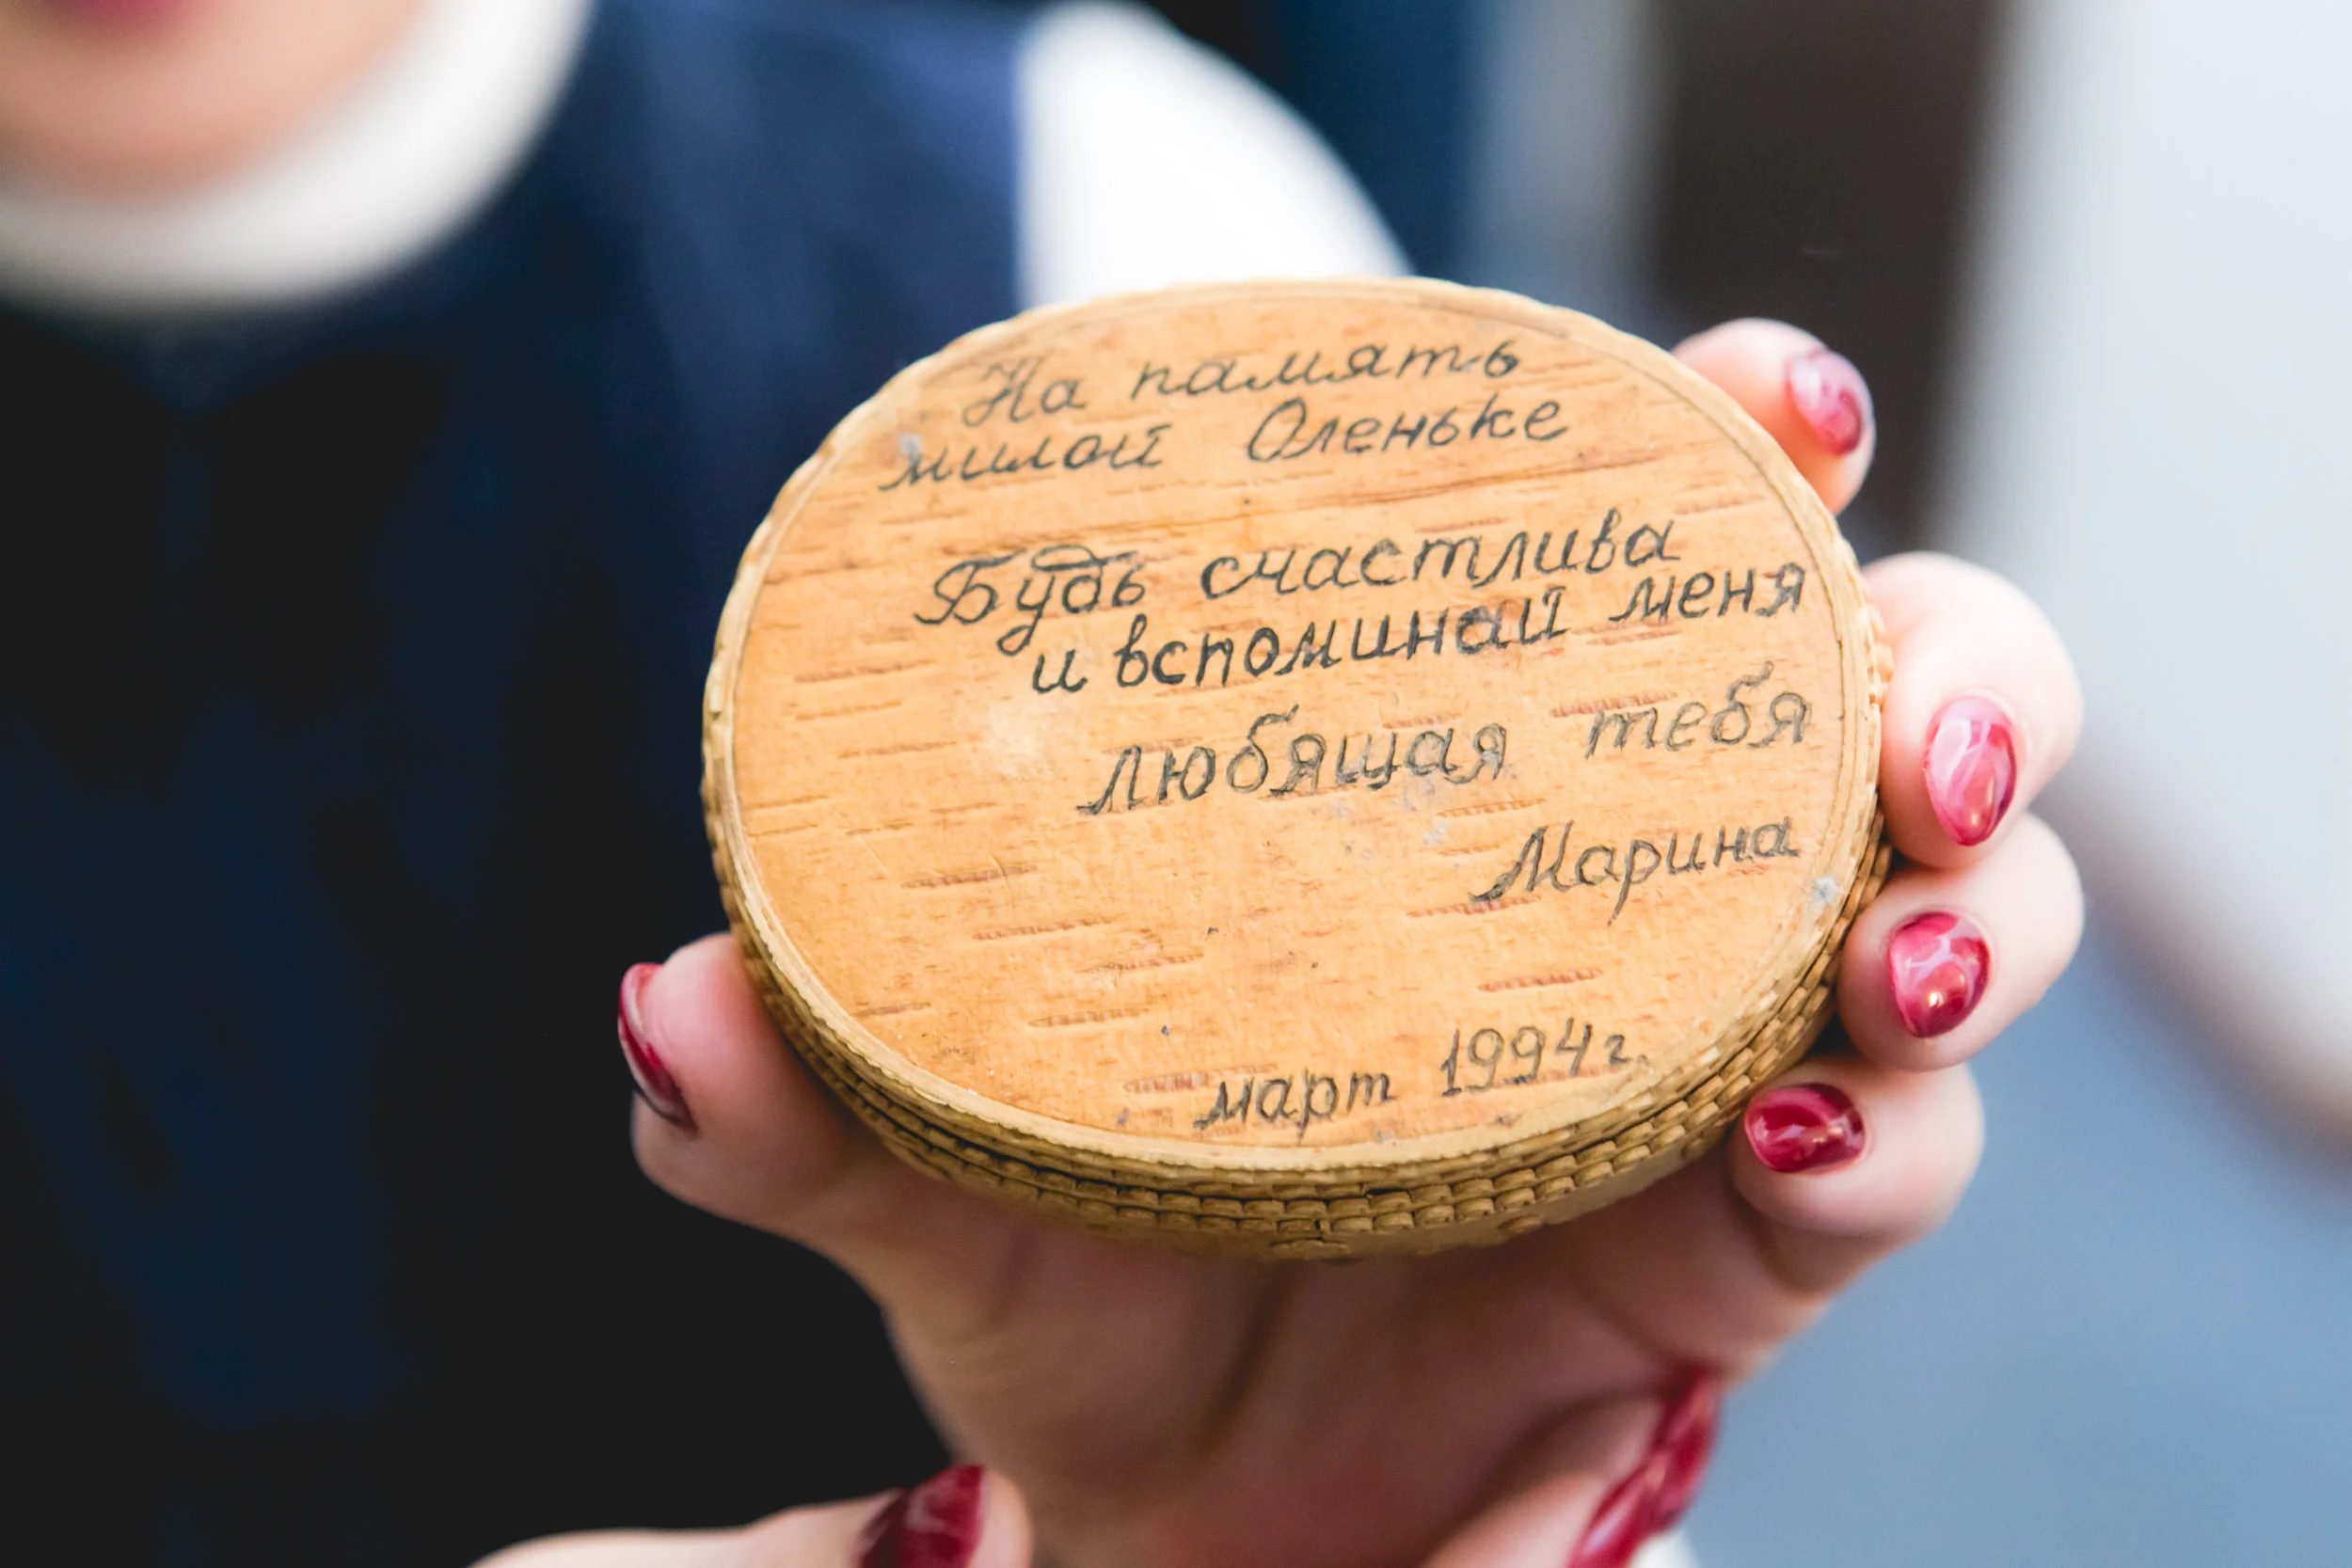 На память
милой Оленьке
Будь счастлива
и вспоминай меня
любящая тебя
Марина
март 1994г.